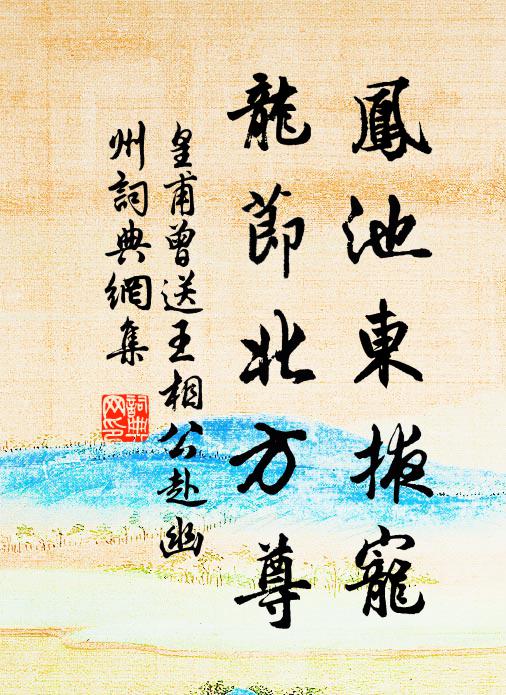 鳳池東掖寵
龍節北方尊
皇甫曾送王相公赴幽
州詞典網集
詞典網印